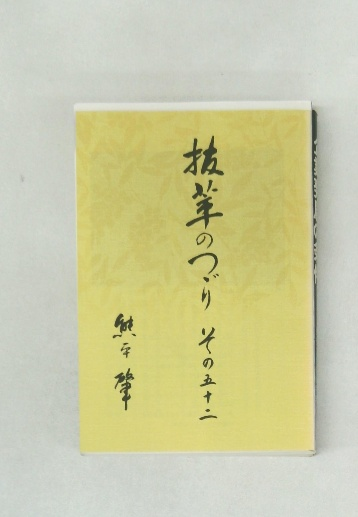 抜萃のつゞり その五十二
熊平 肇